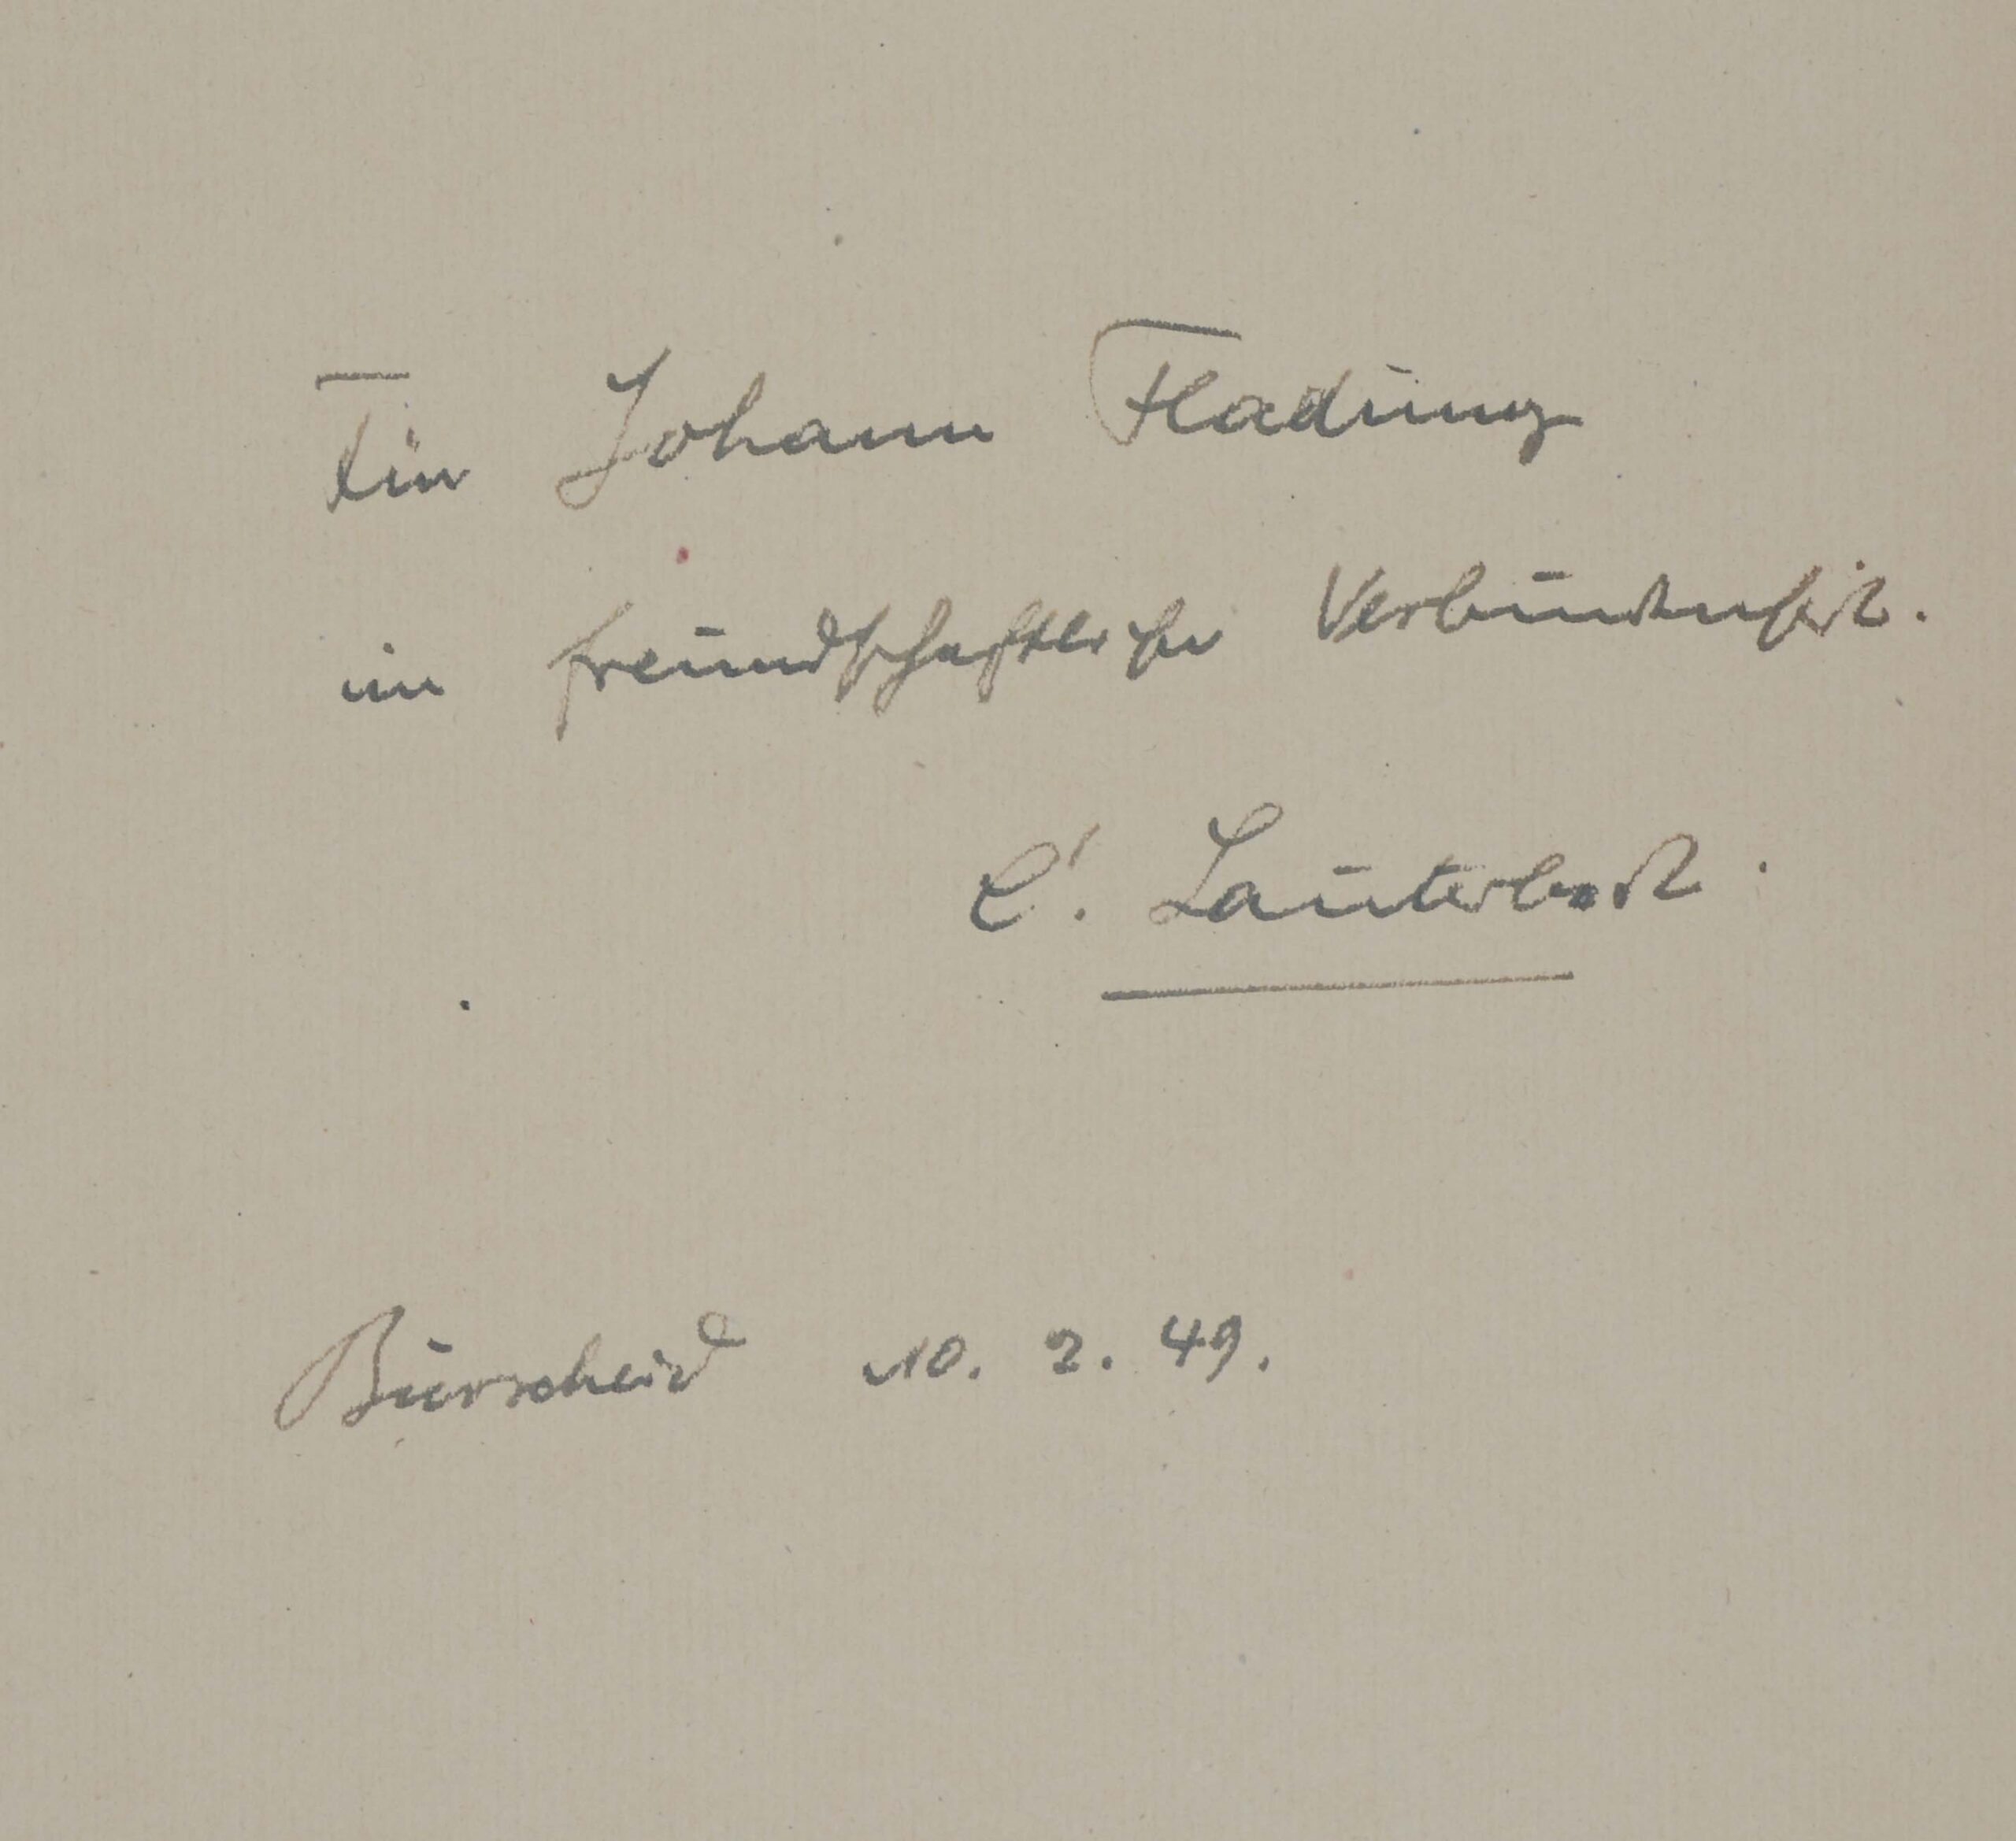 Für Johann Fladung
in freundschaftlicher Verbundenheit.
Lauterbach.
Burscheid 10. 2. 49.